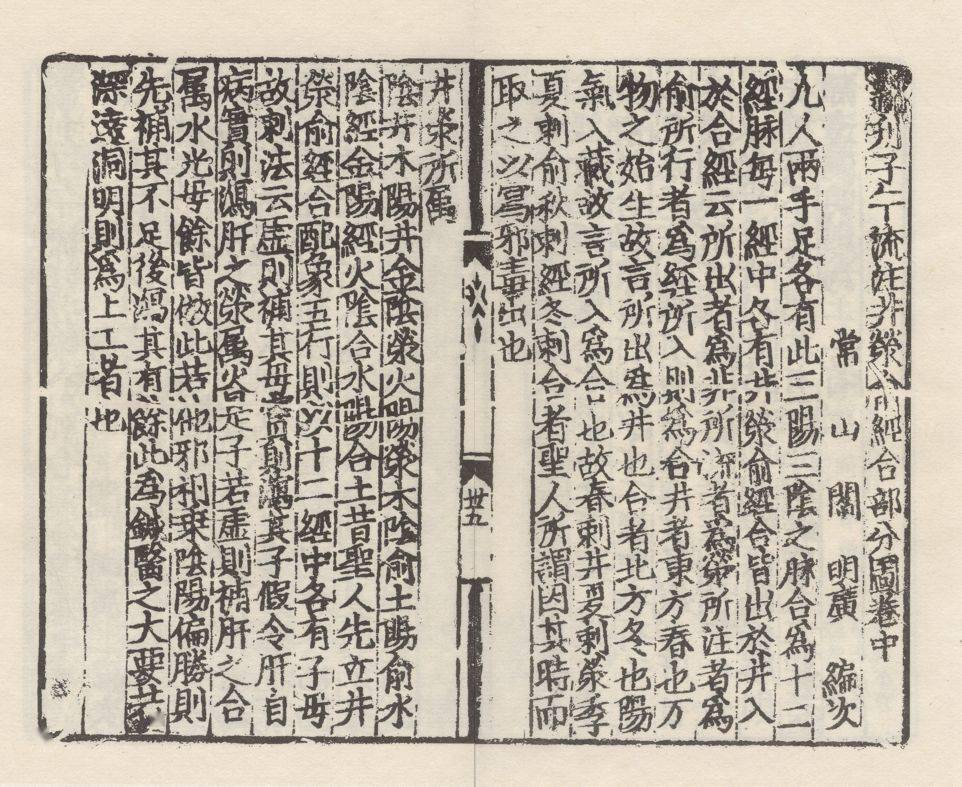 新刋子午流注井滎俞經合部分圖卷中
常山閻明廣編次
凡人兩手足各有此三陽三陰之脉合為十二
經脉每一經中各有井滎俞經合皆出於井入
於合經云所出者為井所流者為滎所注者為
俞所行者為經所入則為合井者東方春也万
物之始生故言所出為井也合者北方冬也陽
氣入藏故言所入為合也故春刺井夏刺滎季
夏刺俞秋刺經冬刺合者聖人所謂因其時而
取之以冩邪毒出也
卅五
井滎所属
陰井木陽井金陰滎火陽滎水陰俞土陽俞木
陰經金陽經火陰合水陽合土昔聖人先立井
滎俞經合配象五行則以十二經中各有子母
故刺法云虚則補其母實則瀉其子假令肝自
病實則瀉肝之滎属火是子若虚則補肝之合
属水光母餘皆倣此若他邪相乗陰陽偏勝則
先補其不足後瀉其有餘此為鍼醫之大要若
深達洞明則為上工者也